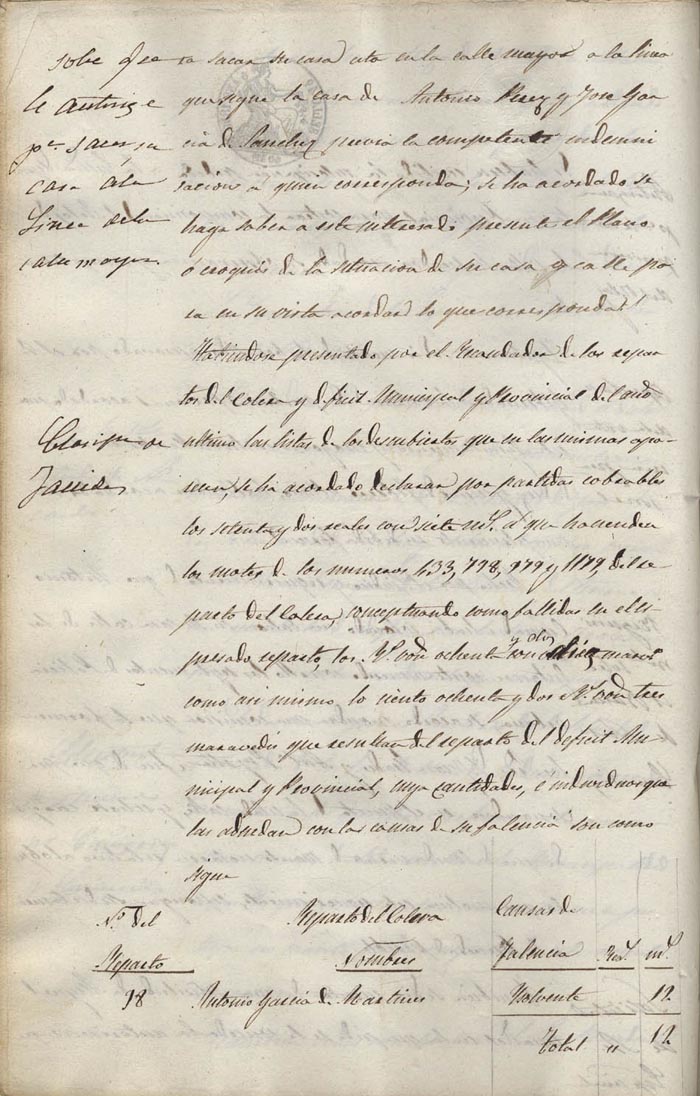 sobe q.e se
le autorize
p.a sacar su
casa á la
Linea de la
calle mayor.
ra sacar su casa sita en la calle mayor a la linea
que sigue la casa de Antonio Perez y Jose Gar
cia de Sanchez previa la competente indemni
sacion a quien corresponda; se ha acordado se
haga saber a este interesado presente el Plano
ó croquis de la situacion de su casa y calle pa
ra en su vista acordar lo que corresponda.
Habiendose presentado por el Recaudador de los repar
tos del Colera y deficit Municipal y Provincial del año
Fallidas
ultimo las listas de los descubiertos que en las mismas apa-
recen, se ha acordado declarar por partidas cobrables
los setenta y dos reales con siete m.s a que hacienden
las cuotas de los numeros 433, 798, 979 y 1179, del re-
parto del Colera, conceptuando como fallidas en el es-
presado reparto, los R.s von ochenta y dos con diez maravs
como asi mismo, lo ciento ochenta y dos R.s von tres
maravedis que resultan del reparto del deficit Mu-
nicipal y Provincial, cuyas cantidades, é individuos que
las adeudan con las causas de su falencia son como
sigue
N.o del Reparto del Colera Causas de
Reparto Nombres Falencia Rs.s m.s
98 Antonio Garcia de Martinez Insolvente 12
Total " 12